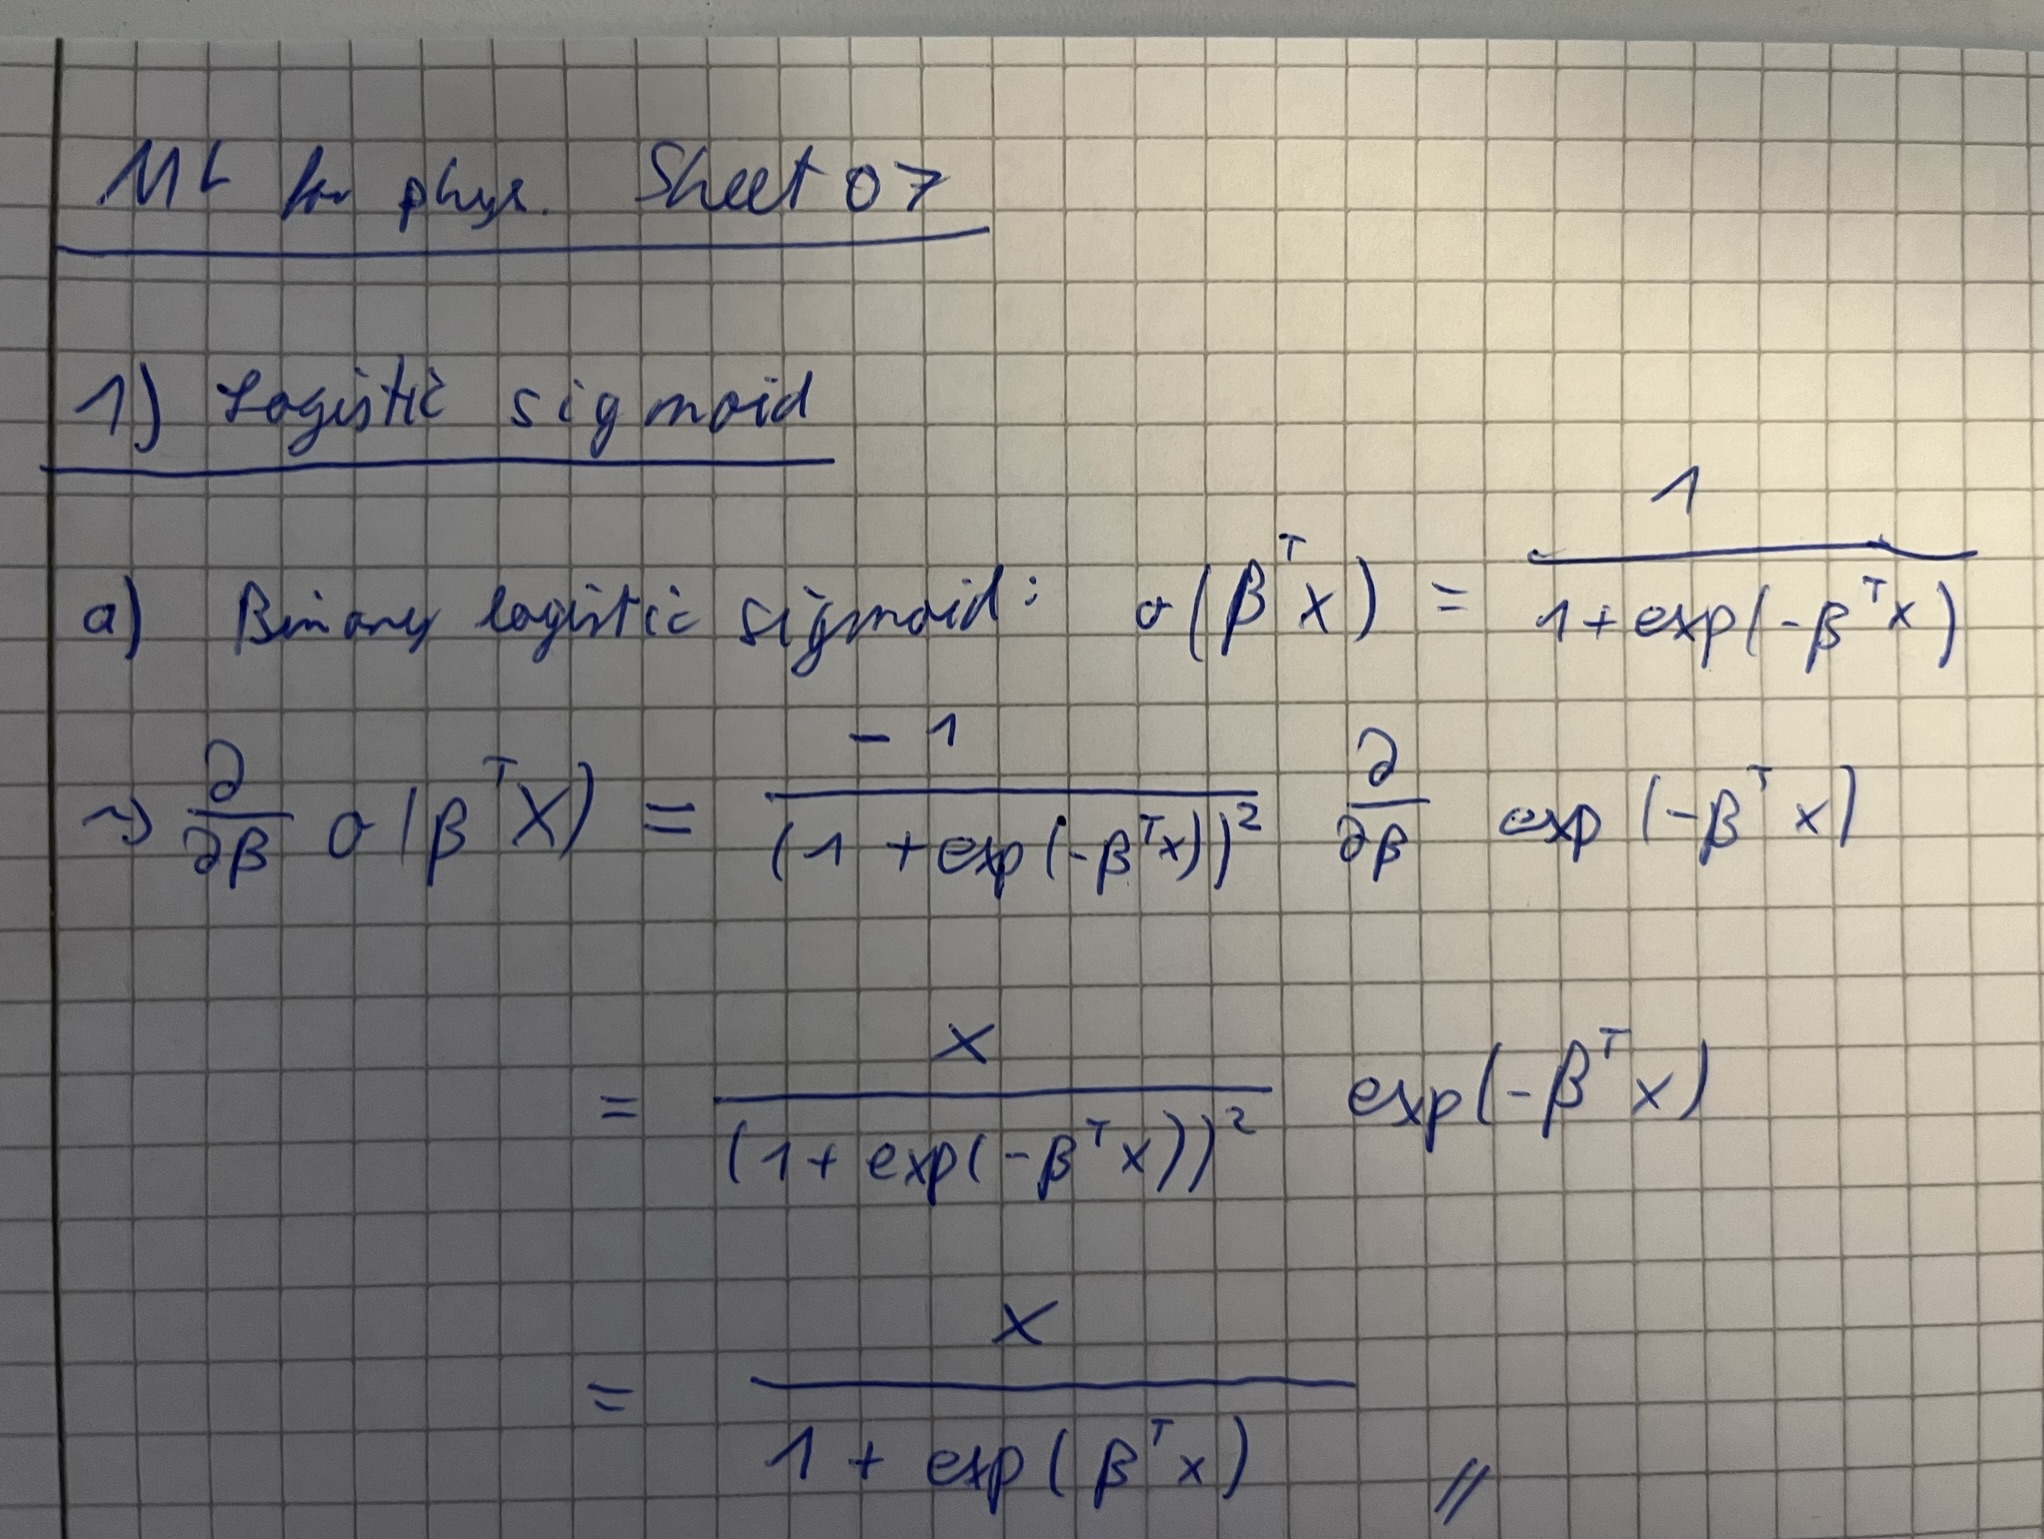 ML for phys. Sheet 07
1) Logistic sigmoid
a) Binary logistic sigmoid: σ(β^T x) = 1 / (1 + exp(-β^T x))
⇝ ∂/∂β σ(β^T x) = -1 / (1 + exp(-β^T x))² ∂/∂β exp(-β^T x)
= x / (1 + exp(-β^T x))² exp(-β^T x)
= x / (1 + exp(β^T x)) //